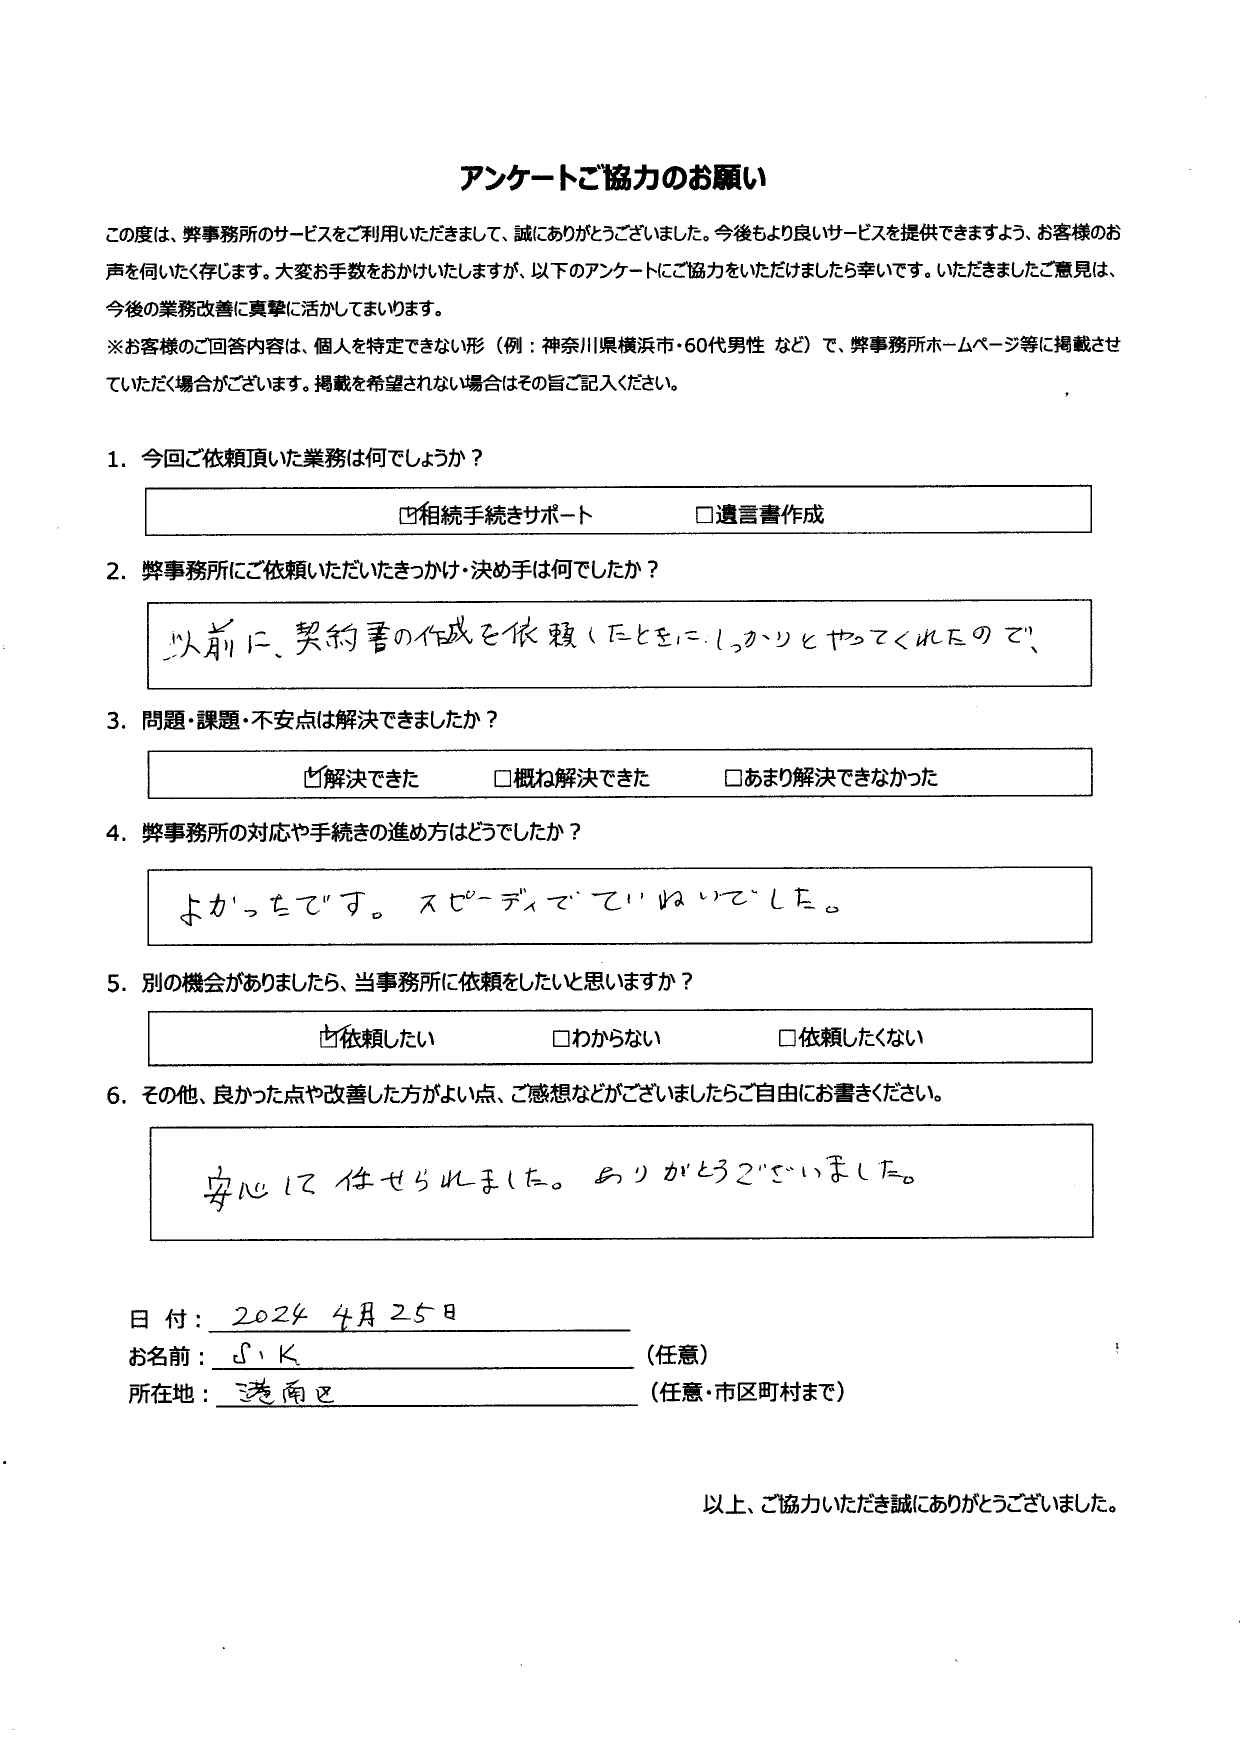 アンケートご協力のお願い
この度は、弊事務所のサービスをご利用いただきまして、誠にありがとうございました。今後もより良いサービスを提供できますよう、お客様のお
声を伺いたく存じます。大変お手数をおかけいたしますが、以下のアンケートにご協力をいただけましたら幸いです。いただきましたご意見は、
今後の業務改善に真摯に活かしてまいります。
※お客様のご回答内容は、個人を特定できない形（例：神奈川県横浜市・60代男性 など）で、弊事務所ホームページ等に掲載させ
ていただく場合がございます。掲載を希望されない場合はその旨ご記入ください。
1. 今回ご依頼頂いた業務は何でしょうか？
☑相続手続きサポート □遺言書作成
2. 弊事務所にご依頼いただいたきっかけ・決め手は何でしたか？
以前に、契約書の作成を依頼したときに、しっかりとやってくれたので、
3. 問題・課題・不安点は解決できましたか？
☑解決できた □概ね解決できた □あまり解決できなかった
4. 弊事務所の対応や手続きの進め方はどうでしたか？
よかったです。スピーディでていねいでした。
5. 別の機会がありましたら、当事務所に依頼をしたいと思いますか？
☑依頼したい □わからない □依頼したくない
6. その他、良かった点や改善した方がよい点、ご感想などがございましたらご自由にお書きください。
安心して任せられました。ありがとうございました。
日 付： 2024 4月25日
お名前： S、K （任意）
所在地： 港南区 （任意・市区町村まで）
以上、ご協力いただき誠にありがとうございました。